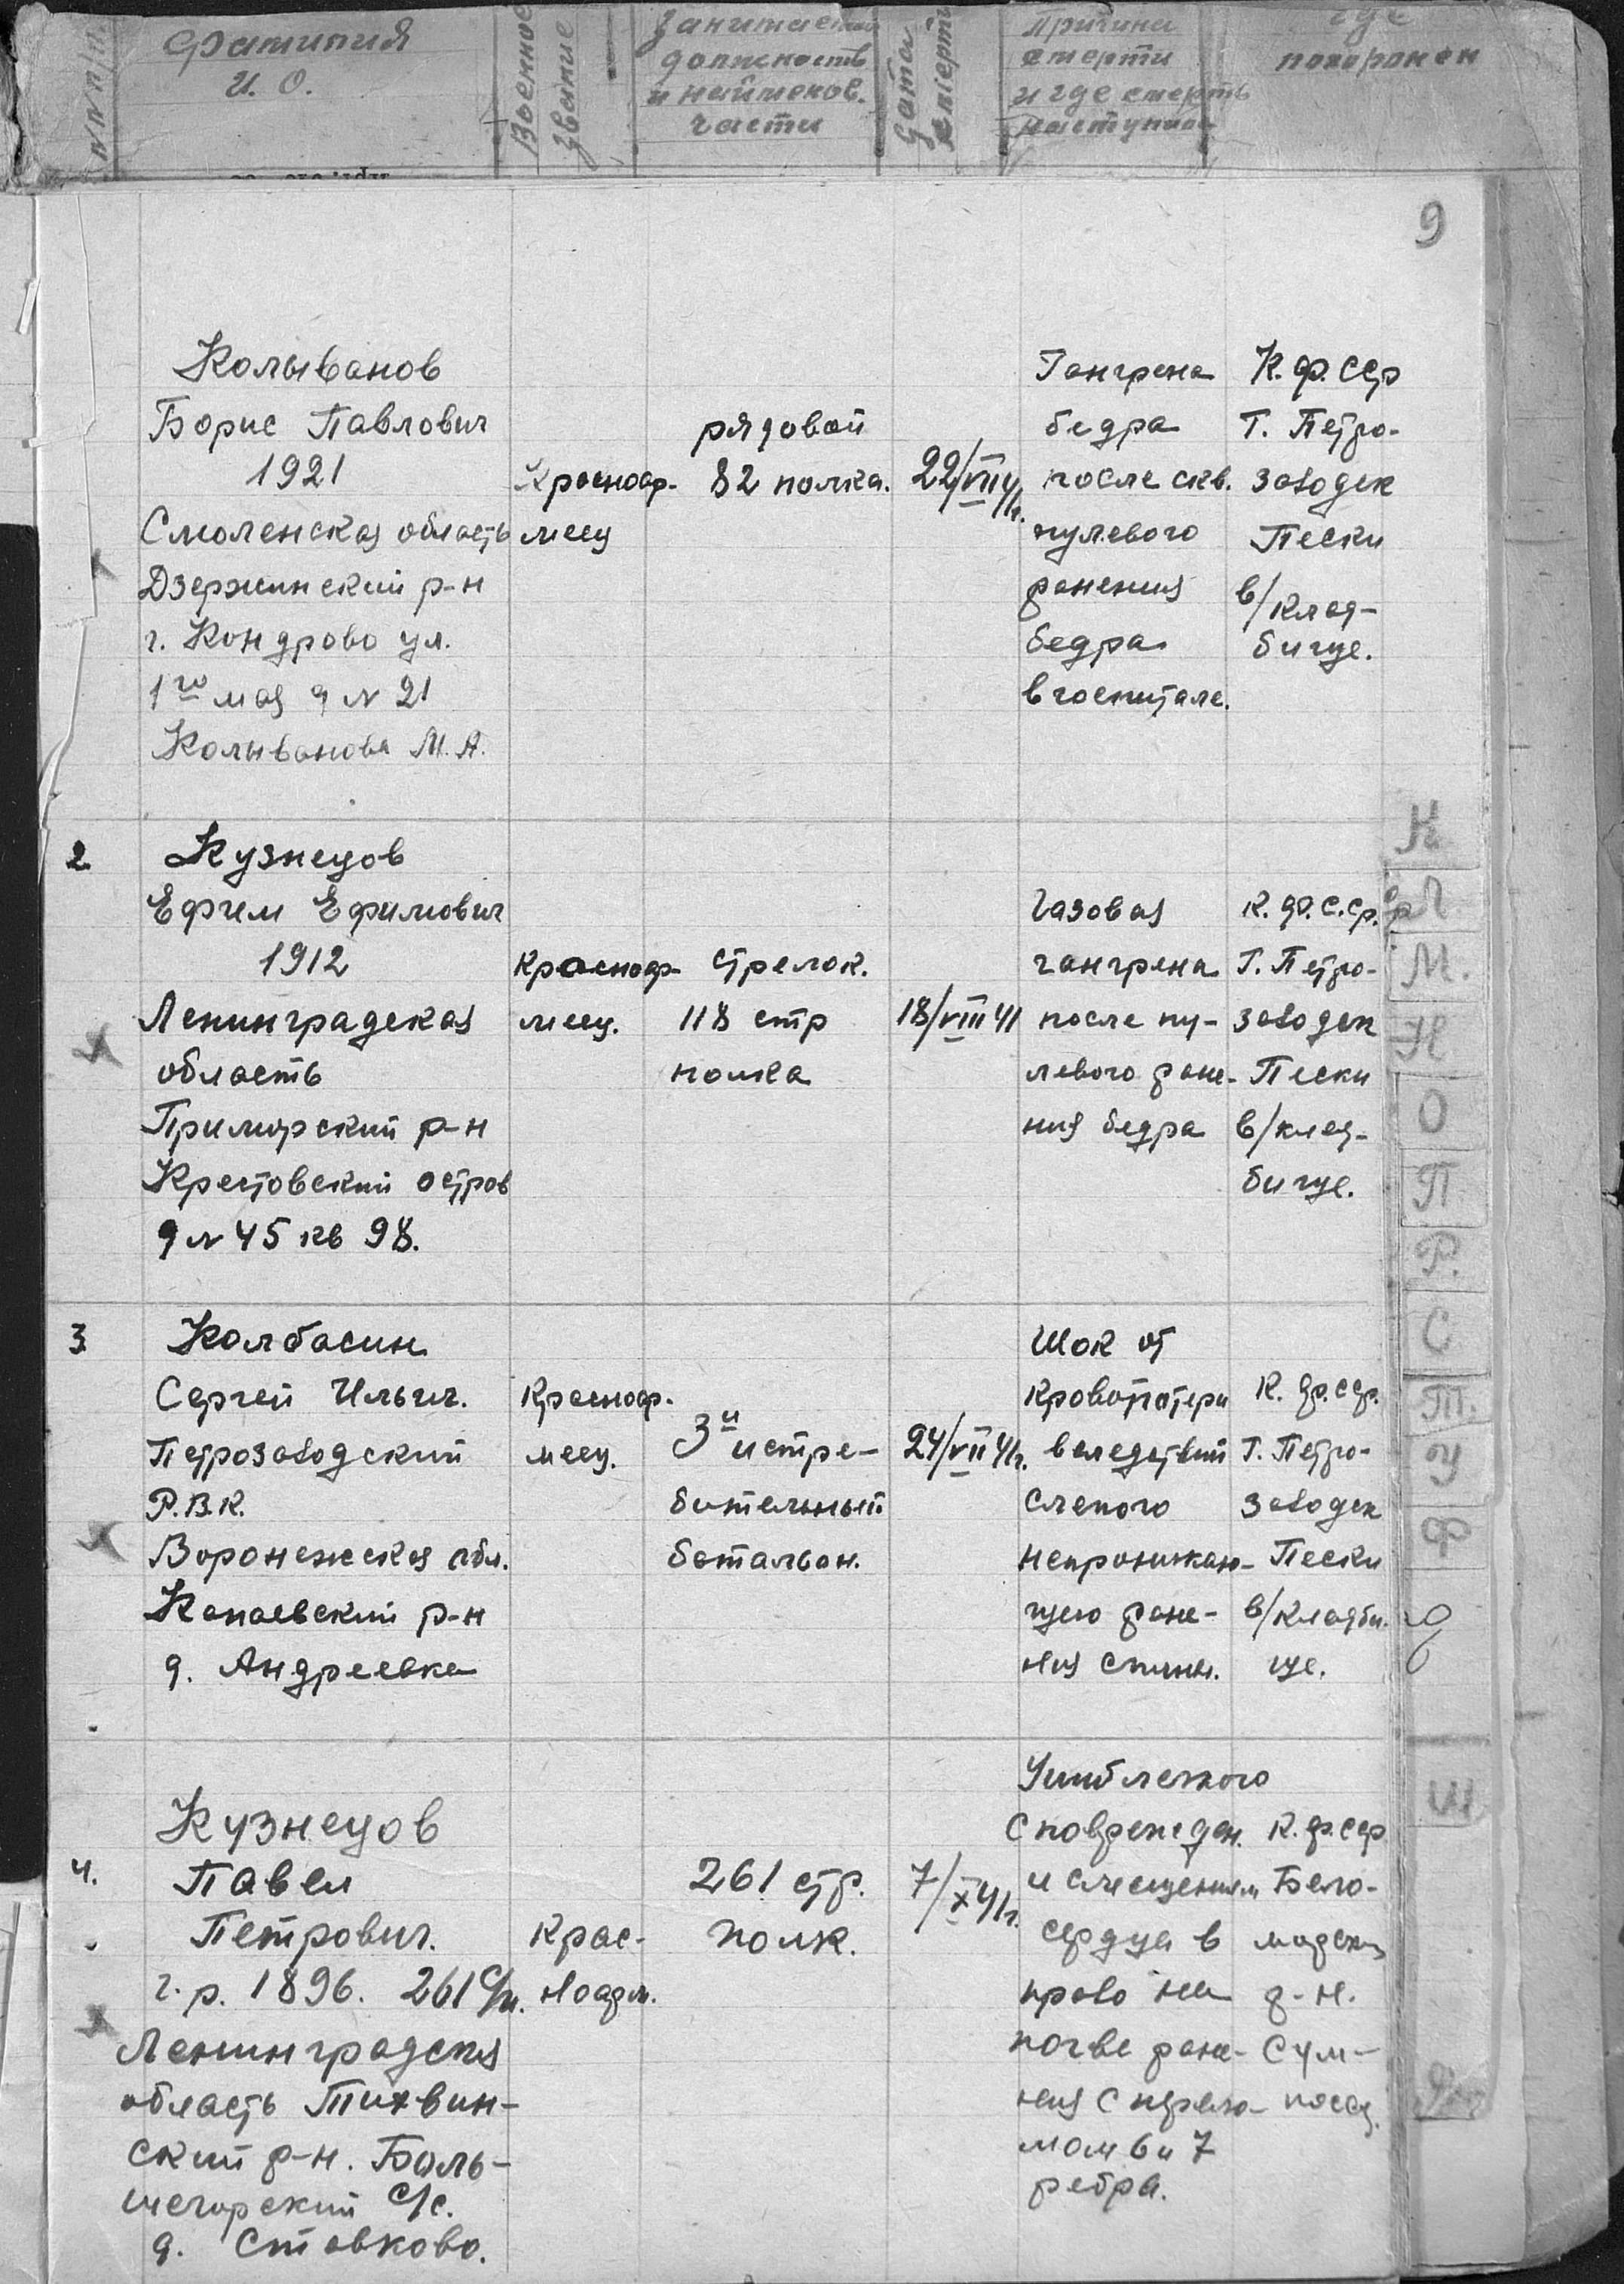 №№ п/п.
Фамилия
И. О.
Военное
звание
Занимаемая
должность
и наименов.
части
Дата
смерти
Причина
смерти
и где смерть
наступила
где
похоронен
9
Колыванов
Борис Павлович
1921
Смоленская область
Дзержинский р-н
г. Кондрово ул.
1го мая д N 21
Колыванова М. А.
Красноар-
меец
рядовой
82 полка.
22/VII 41г.
Гангрена
бедра
после скв.
пулевого
ранения
бедра
в госпитале.
К. Ф. ССР
г. Петро-
заводск
Пески
в/клад-
бище.
2
Кузнецов
Ефим Ефимович
1912
Ленинградская
область
Приморский р-н
Крестовский остров
д N 45 кв 98.
Красноар-
меец.
стрелок.
118 стр
полка
18/VIII 41
Газовая
гангрена
после пу-
левого ране-
ния бедра
К. Ф. С. Ср.
г. Петро-
заводск
Пески
в/клад-
бище.
3
Колбасин
Сергей Ильич.
Петрозаводский
Р.В.К.
Воронежская обл.
Копаевский р-н
д. Андреевка
Красноар-
меец.
3й истре-
бительный
батальон.
24/VII 41г.
Шок от
кровопотери
вследствии
слепого
непроникаю-
щего ране-
ния спины.
К. Ф. ССР.
г. Петро-
заводск
Пески
в/кладби-
ще.
4.
Кузнецов
Павел
Петрович.
г. р. 1896. 261 с/п.
Ленинградская
область Тихвин-
ский р-н. Боль-
шегорский с/с.
д. Ставково.
Крас-
ноарм.
261 стр.
полк.
7/X 41г.
Ушиб легкого
с поврежден.
и смещением
сердца в
право на
почве ране-
ния с перело-
мом 6 и 7
ребра.
К. Ф. ССР
Бело-
морский
р-н.
Сум-
посад.
К
Л
М.
Н
О
П
Р.
С
Т.
У
Ф
Ш